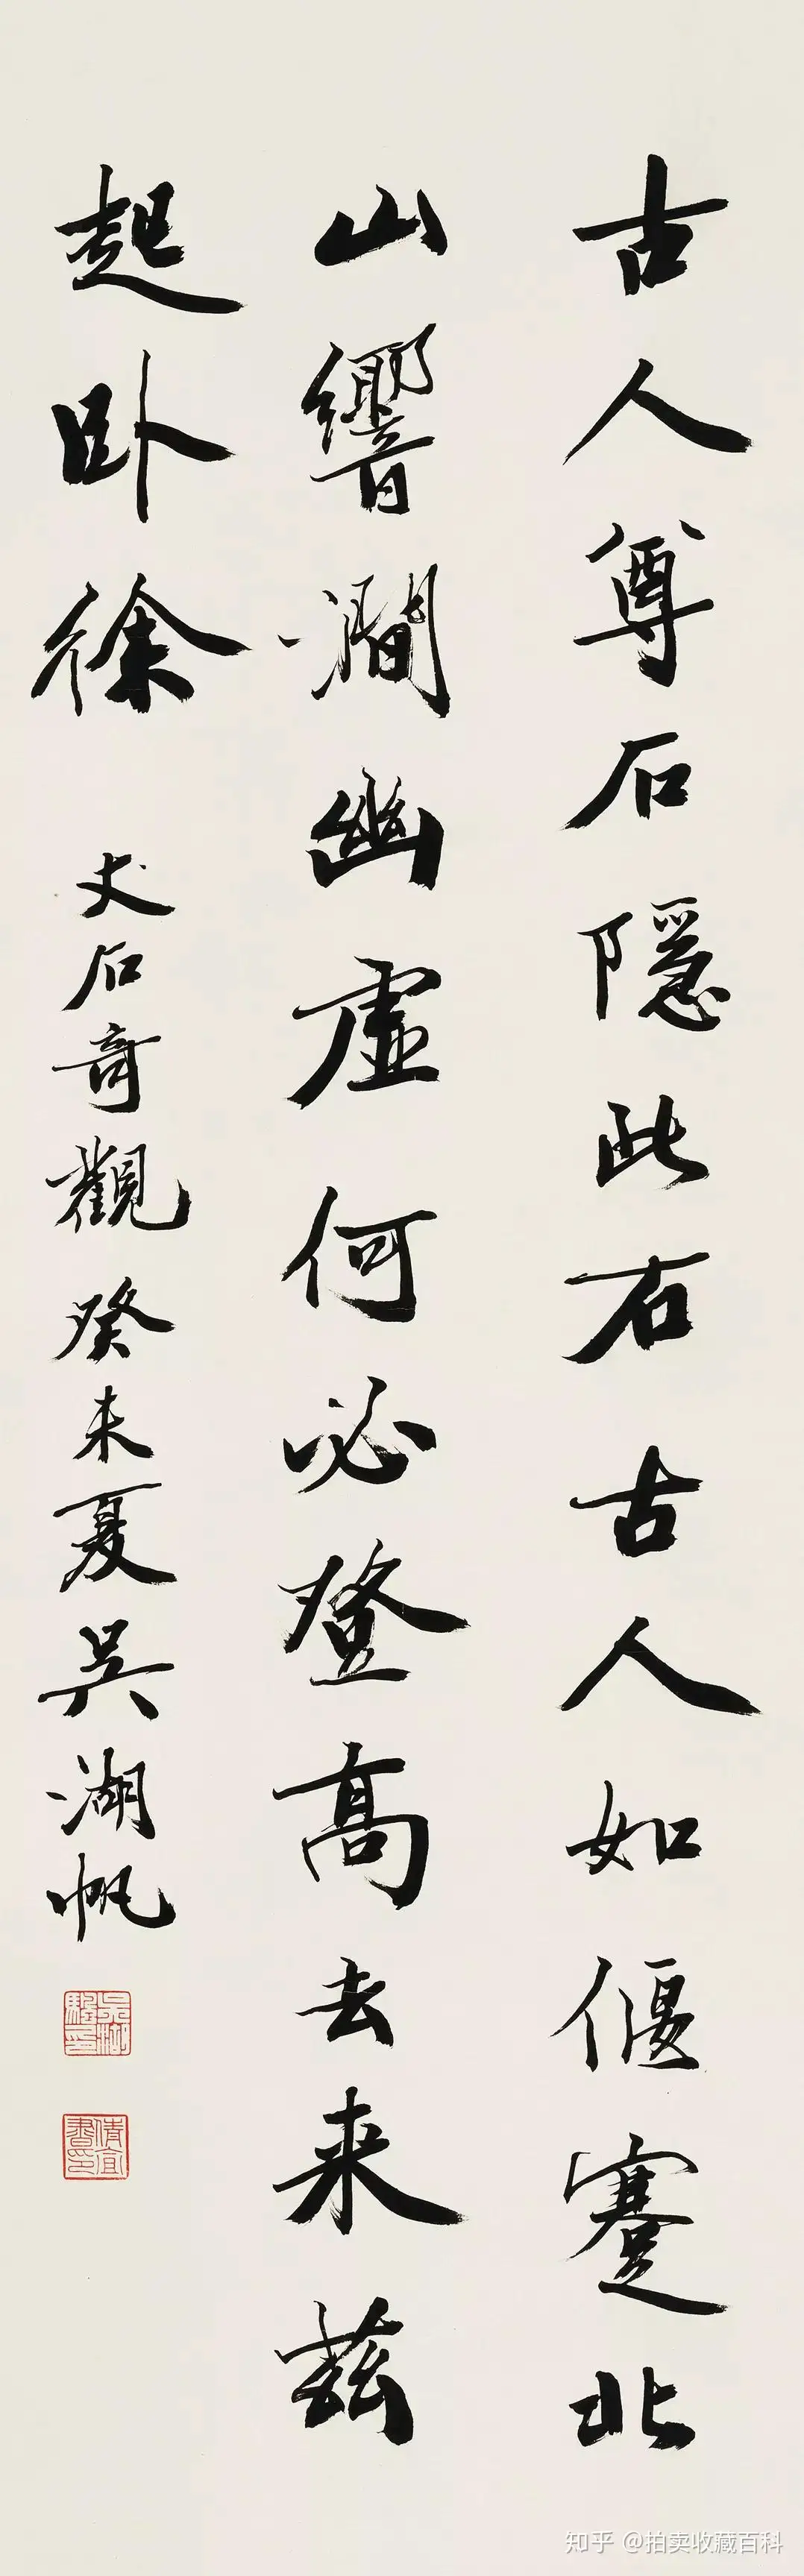 古人尊石隱此石古人如偃蹇北
山響澗幽虛何必登高去来茲
起卧徐
丈石奇觀癸未夏吳湖帆
倩宜書印
知乎 @拍卖收藏百科